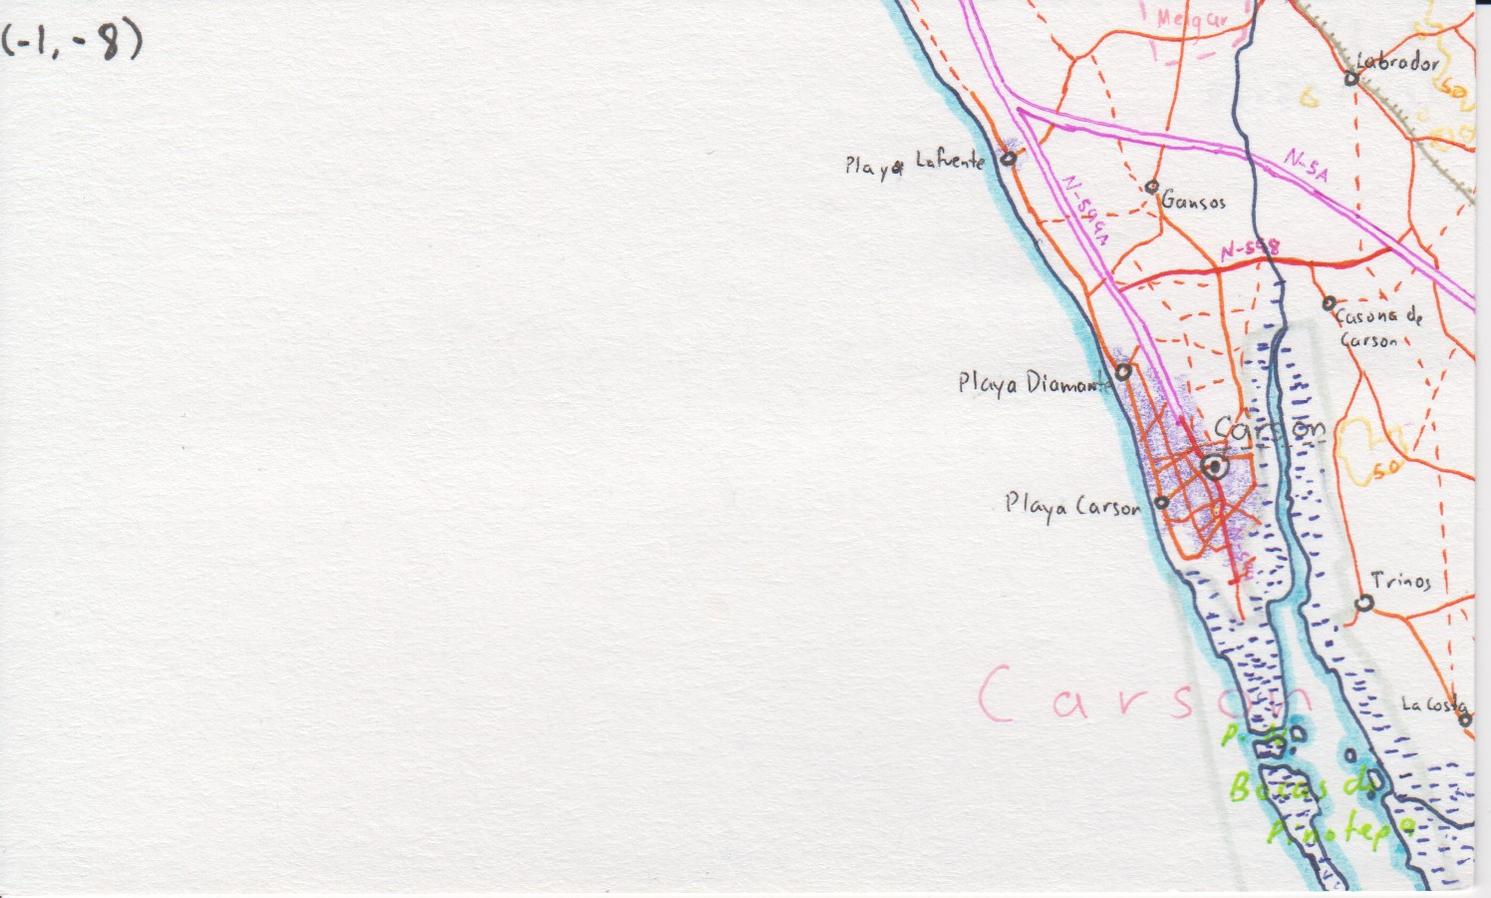 (-1, -8)
Melgar
Labrador
50
Playa Lafuente
N-5A
N-599A
Gansos
N-598
Casona de
Carson
Playa Diamante
Carson
50
Playa Carson
Trinos
Carson
La Costa
P. N.
Bocas de
Pinotepa